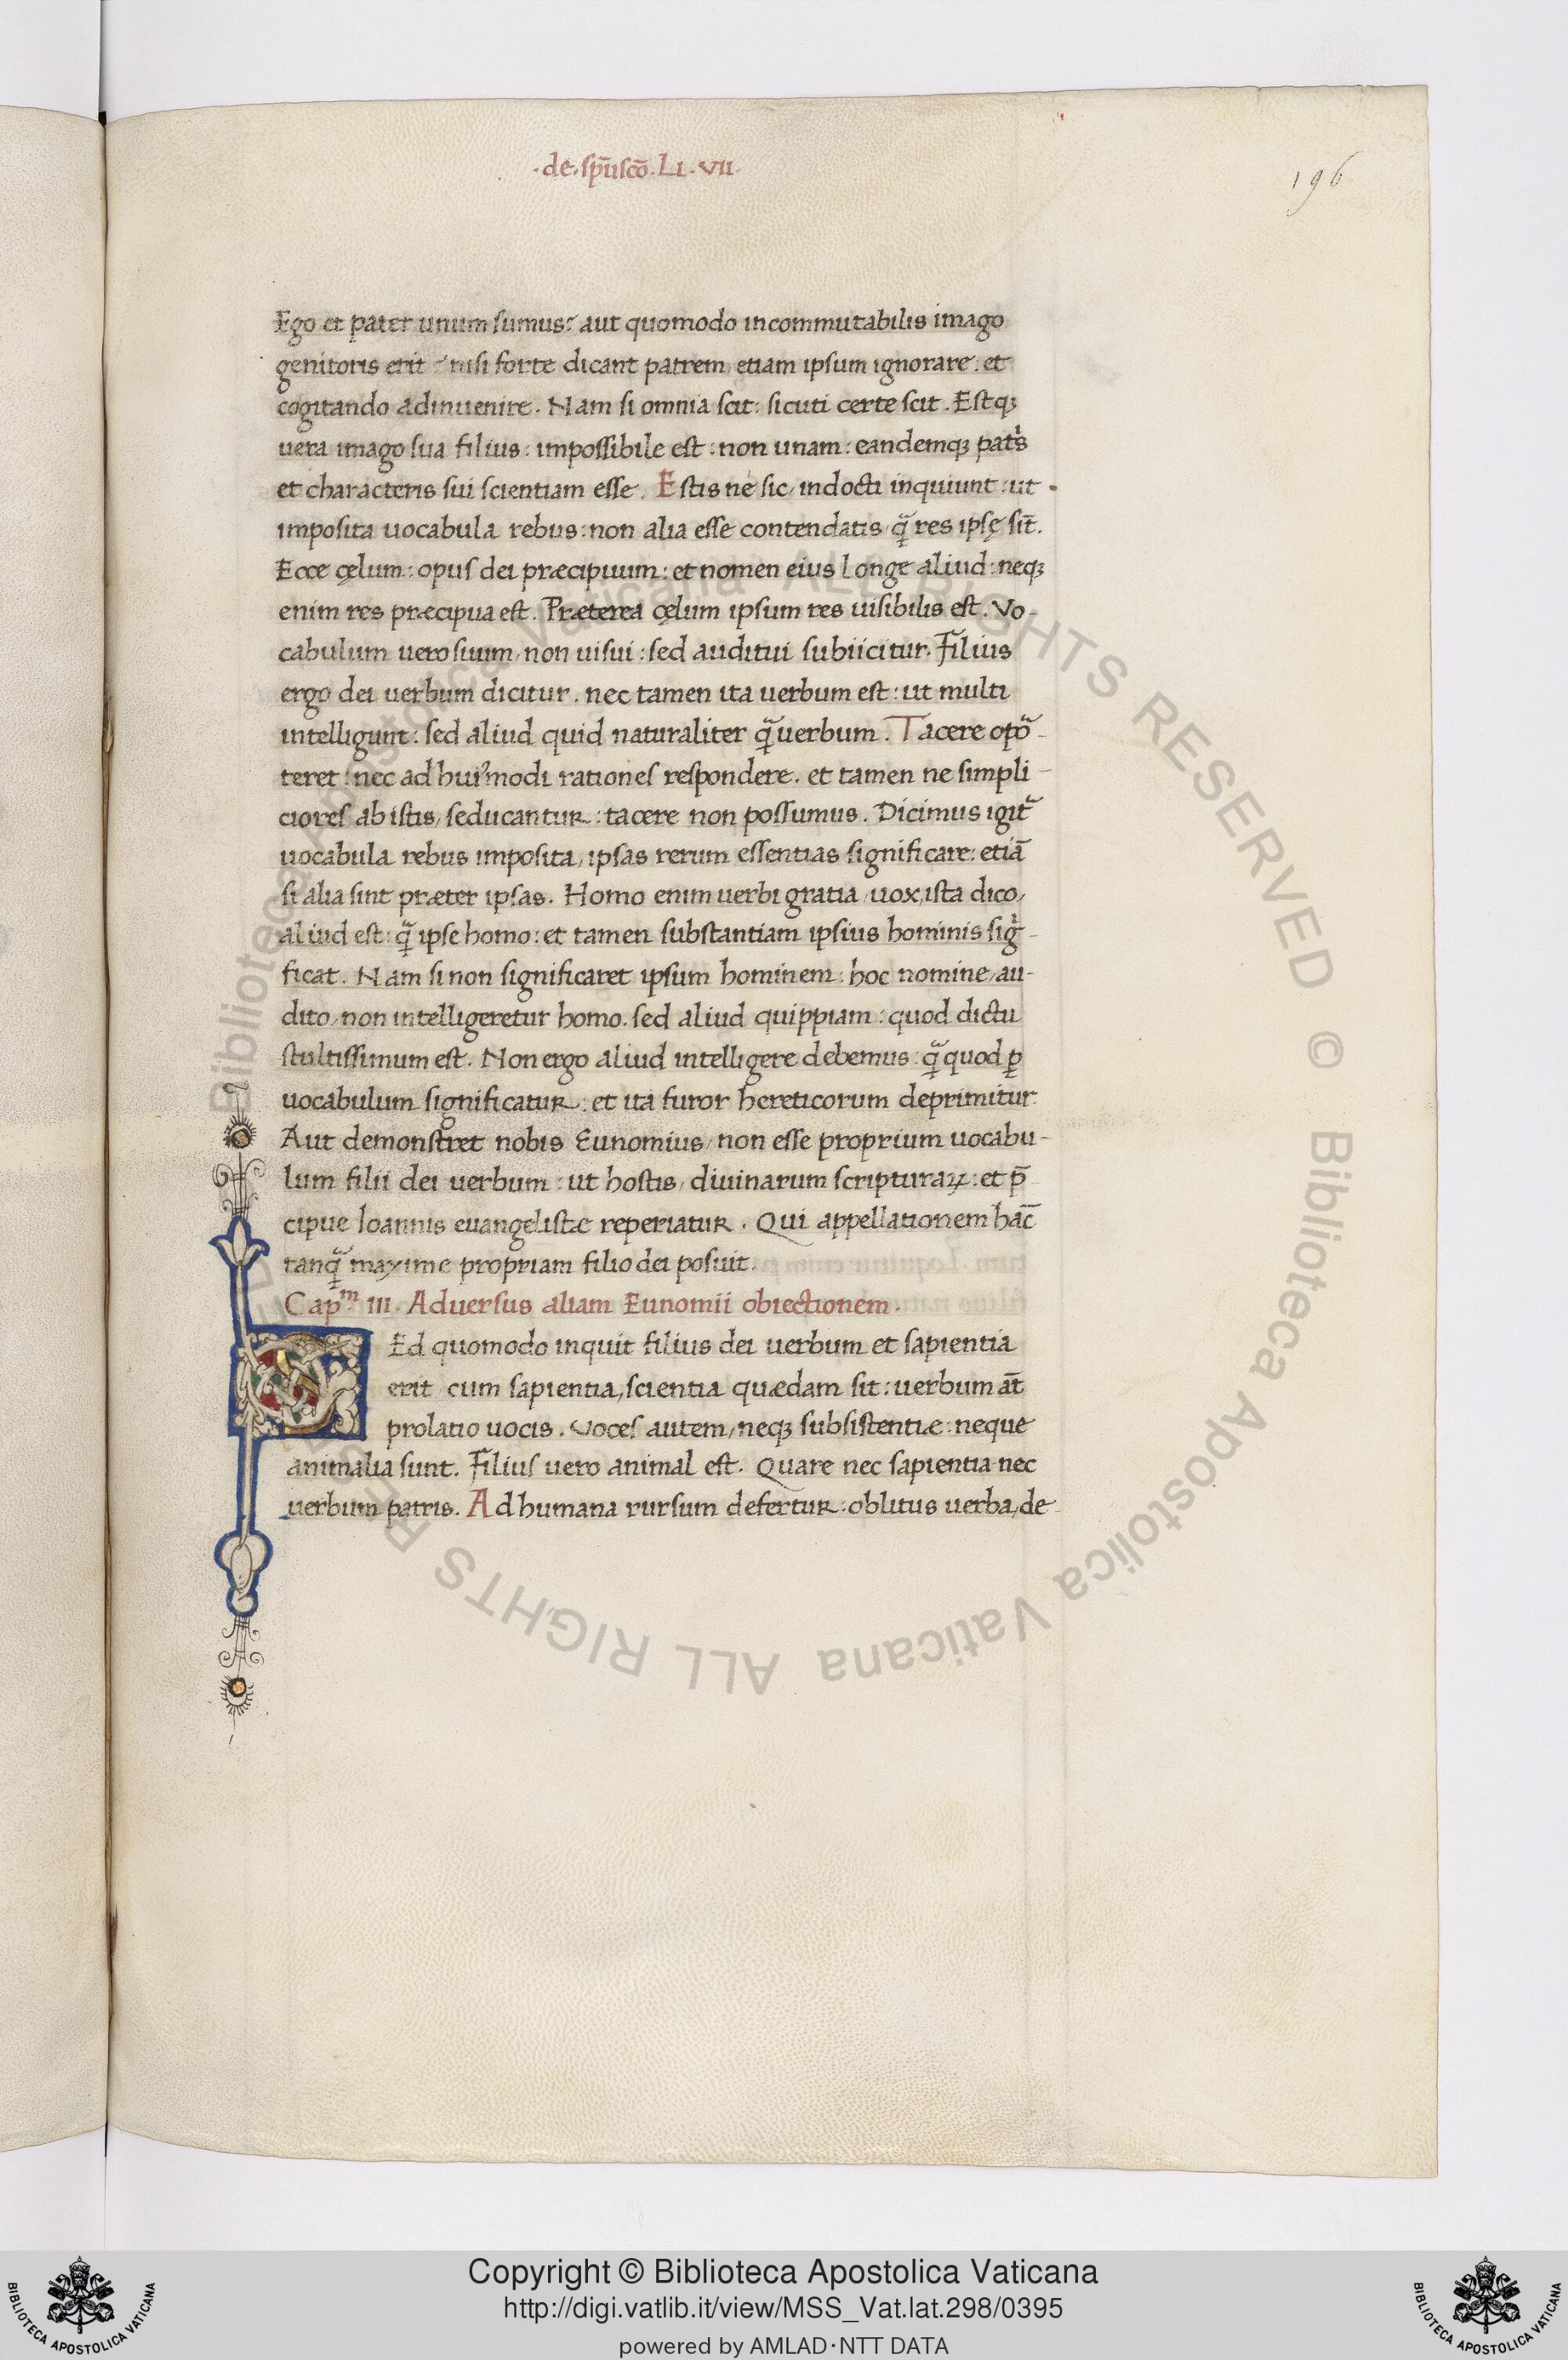 .de.sp̄uscō.LI.VII.
196
Ego et pater unum sumus? aut quomodo incommutabilis imago
genitoris erit? nisi forte dicant patrem etiam ipsum ignorare: et
cogitando adinuenire. Nam si omnia scit: sicuti certe scit. Estqꝫ
uera imago sua filius: impossibile est: non unam: eandemqꝫ pat̉s
et characteris sui scientiam esse. Estis ne sic, indocti inquiunt: ut
imposita uocabula rebus: non alia esse contendatis, q̃ res ipsę sīt.
Ecce cęlum: opus dei præcipuum: et nomen eius longe aliud: neqꝫ
enim res præcipua est. Præterea cęlum ipsum res uisibilis est. Vo-
cabulum uero suum, non uisui: sed auditui subiicitur. Filius
ergo dei uerbum dicitur. nec tamen ita uerbum est: ut multi
intelligunt: sed aliud quid naturaliter q̃ uerbum. Tacere opo᷑-
teret: nec ad hui᾽modi rationes respondere. et tamen ne simpli-
ciores ab istis, seducantur: tacere non possumus. Dicimus igit᷑
uocabula rebus imposita, ipsas rerum essentias significare: etiā
si alia sint præter ipsas. Homo enim uerbi gratia, uox, ista dico,
aliud est: q̃ ipse homo: et tamen substantiam ipsius hominis sig̉-
ficat. Nam si non significaret ipsum hominem: hoc nomine, au-
dito, non intelligeretur homo. sed aliud quippiam: quod dictu
stultissimum est. Non ergo aliud intelligere debemus: q̃ quod ꝑ
uocabulum significatur: et ita furor hereticorum deprimitur.
Aut demonstret nobis Eunomius, non esse proprium uocabu-
lum filii dei uerbum: ut hostis, diuinarum scripturaꝝ: et p̄-
cipue Ioannis euangelistæ reperiatur. Qui appellationem hāc
tanq̃ maxime propriam filio dei posuit.
Capᵐ. III. Aduersus aliam Eunomii obiectionem.
SEd quomodo inquit filius dei uerbum et sapientia
erit cum sapientia, scientia quædam sit: uerbum at̄
prolatio uocis. Voces autem, neqꝫ subsistentiæ: neque
animalia sunt. Filius uero animal est. Quare nec sapientia nec
uerbum patris. Ad humana rursum defertur: oblitus uerba, de
Biblioteca Apostolica Vaticana ALL RIGHTS RESERVED © Biblioteca Apostolica Vaticana ALL RIGHTS RESERVED
Copyright © Biblioteca Apostolica Vaticana
http://digi.vatlib.it/view/MSS_Vat.lat.298/0395
powered by AMLAD·NTT DATA
BIBLIOTECA APOSTOLICA VATICANA
BIBLIOTECA APOSTOLICA VATICANA